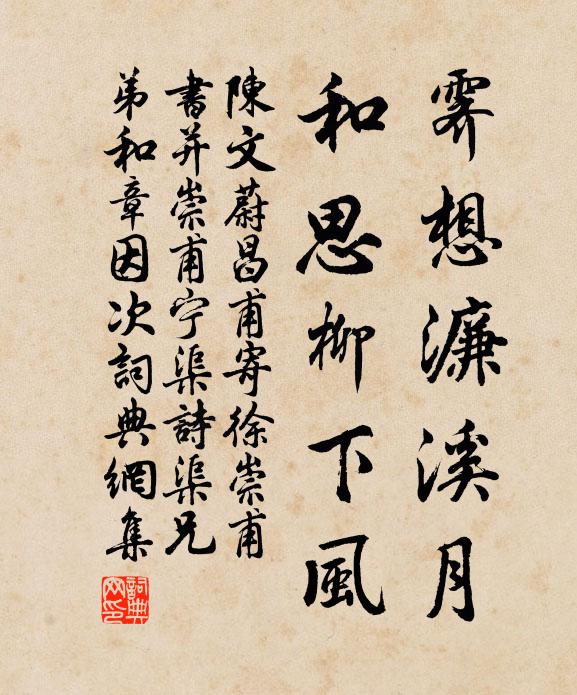 霽想濂溪月
和思柳下風
陳文蔚昌甫寄徐崇甫
書并崇甫宁渠詩渠兄
弟和章因次詞典網集
詞典
网印